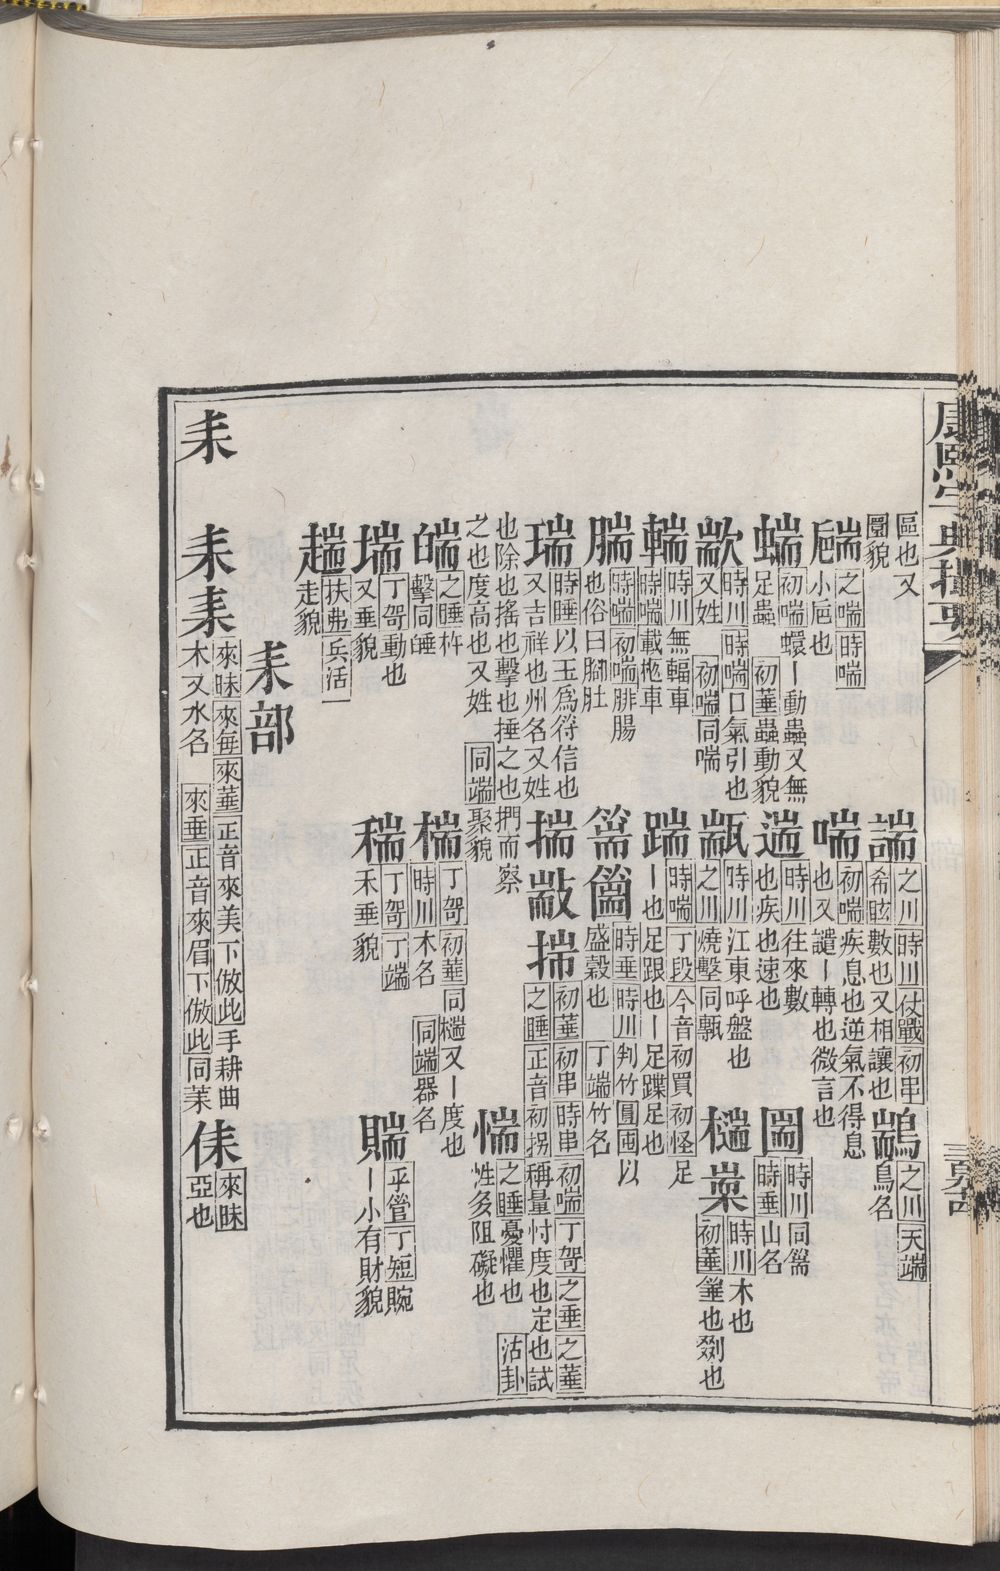 康熙字典撮要
區也又
圜貌
𧣾之喘時喘
小巵也
諯之川時川仗戰初串
希眩數也又相讓也
鷒之川天端
鳥名
蝡初喘蠉丨動蟲又無
足蟲 初華蟲動貌
喘初喘疾息也逆氣不得息
也又譴丨轉也微言也
歂時川時喘口氣引也
又姓 初喘同喘
遄時川往來數
也疾也速也
圌時川同篅
時垂山名
輲時川無輻車
時喘載柩車
㼷時川江東呼盤也
之川燒墼同甎
檛時川木也
初華箠也劉也
腨時喘初喘腓腸
也俗曰腳肚
踹時喘丁段今音初買初怪足
丨也足跟也丨足蹀足也
瑞時睡以玉爲符信也
又吉祥也州名又姓
篅時垂時川判竹圓㽃以
盛穀也 丁端竹名
揣初華初串時串初喘丁哿之垂之華
之睡正音初拐稱量忖度也定也試
也除也搖也擊也捶之也捫而察
之也度高也又姓 同端聚貌
惴之睡憂懼也 沽卦
性多阻礙也
之睡杵
擊同䭔
椯丁哿初華同檛又丨度也
時川木名 同端器名
丁哿動也
又垂貌
稖丁哿丁端
禾垂貌
乎管丁短䝹
丨小有財貌
扶弗兵活一
走貌
耒部
耒
耒來昧來每來華正音來美下倣此手耕曲
木又水名 來垂正音來眉下倣此同虆
㑍來昧
亞也